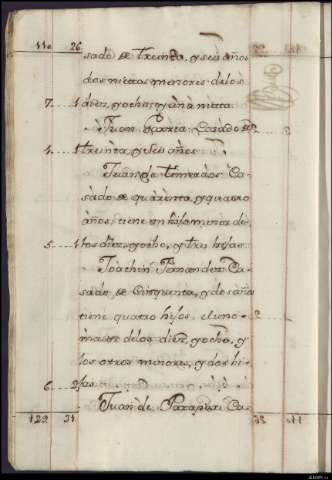 110 26
sado de treinta, y seis años
dos nietos menores de los
7. 1 diez, y ocho, y una nieta
Juan Garzia Casado de
1. 1 treinta, y seis años
Juan de Ca-
sado de quarenta, y quatro
años, tiene un hijo menor de
5. 1 los diez, y ocho, y tres hijas
Joachin Fernandez Ca-
sado de Cinquenta, y dos años
tiene quatro hijos, el uno
maior de los diez, y ocho, y
los otros menores, y dos hi-
6. 2 jas
129 31
Juan de Ca-